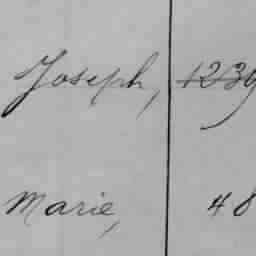 Joseph, 1239
Marie, 48